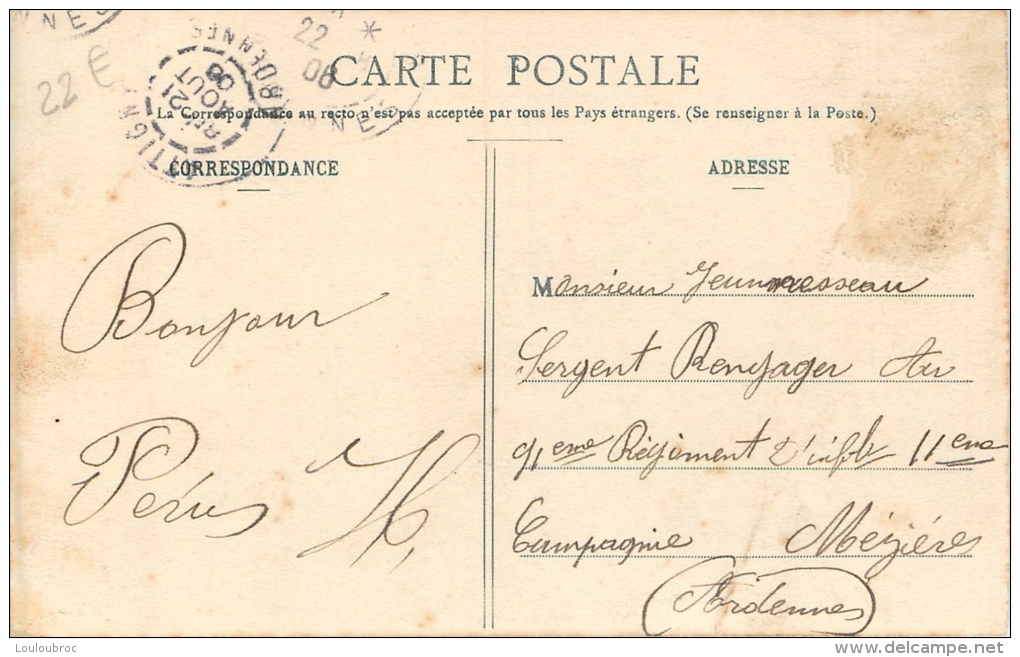 22 €
22
06
ATTIGNY
21
AOUT
06
ARDENNES
CARTE POSTALE
La Correspondance au recto n'est pas acceptée par tous les Pays étrangers. (Se renseigner à la Poste.)
CORRESPONDANCE
ADRESSE
Bonjour
Monsieur Jeunnesseau
Sergent Rengager Au
91eme Régiment d'infie 11eme
Compagnie Mézières
Ardennes
Louloubroc
delcampe.net